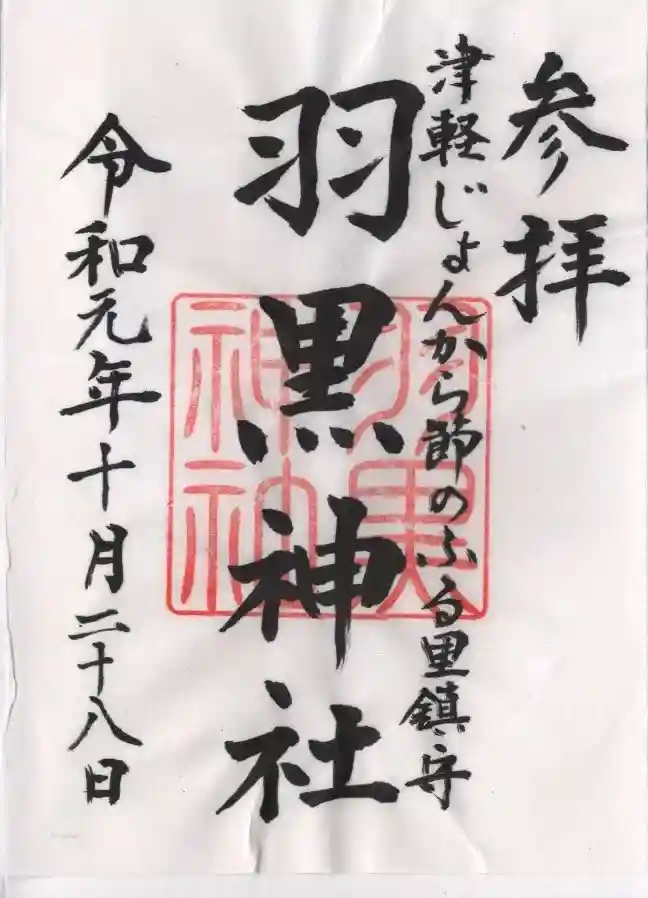 参拝
津軽じょんから節のふる里鎮守
羽黒神社
羽黒
神社
令和元年十月二十八日